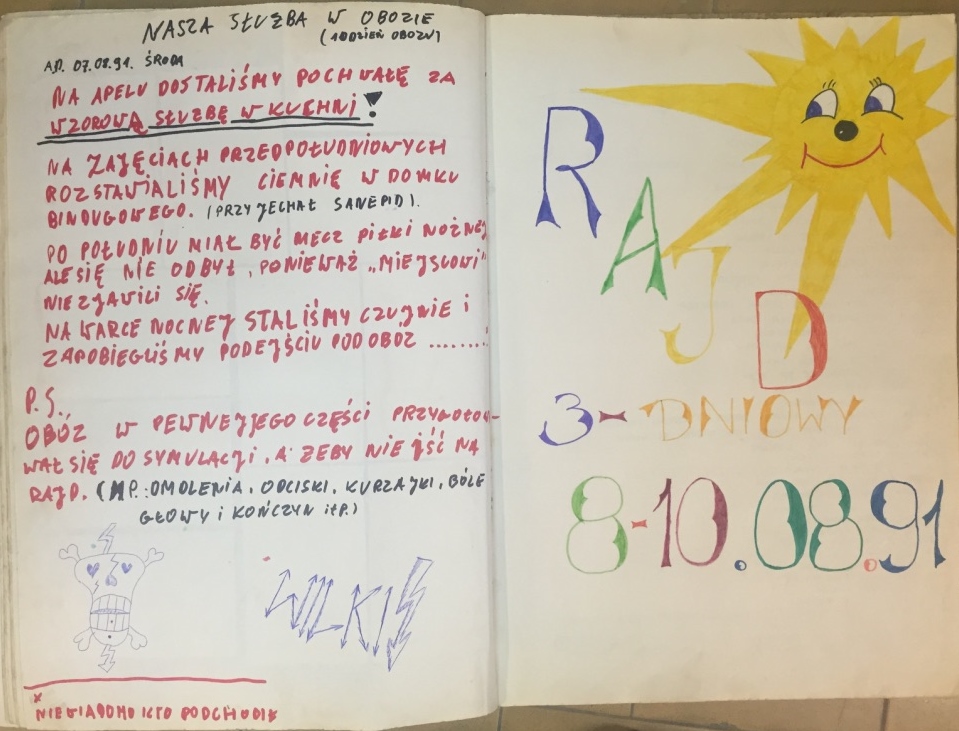 NASZA SŁUŻBA W OBOZIE
(10DZIEŃ OBOZU)
A.D. 07.08.91. ŚRODA
NA APELU DOSTALIŚMY POCHWAŁĘ ZA
WZOROWĄ SŁUŻBĘ W KUCHNI!
NA ZAJĘCIACH PRZEDPOŁUDNIOWYCH
ROZSTAWIALIŚMY CIEMNIĘ W DOMKU
BINDUGOWEGO. (PRZYJECHAŁ SANEPID).
PO POŁUDNIU MIAŁ BYĆ MECZ PIŁKI NOŻNEJ
ALE SIĘ NIE ODBYŁ, PONIEWAŻ „MIEJSCOWI"
NIE ZJAWILI SIĘ.
NA WARCE NOCNEJ STALIŚMY CZUJNIE I
ZAPOBIEGLIŚMY PODEJŚCIU POD OBÓZ ........
P.S.
OBÓZ W PEWNEJ JEGO CZĘŚCI PRZYGOTOWY-
WAŁ SIĘ DO SYMULACJI, A ŻEBY NIE IŚĆ NA
RAJD. (NP.: OMDLENIA, ODCISKI, KURZAJKI, BÓLE
GŁOWY i KOŃCZYN itP.)
WILKI
x
NIE WIADOMO KTO PODCHODIŁ
RAJD
3-DNIOWY
8-10.08.91